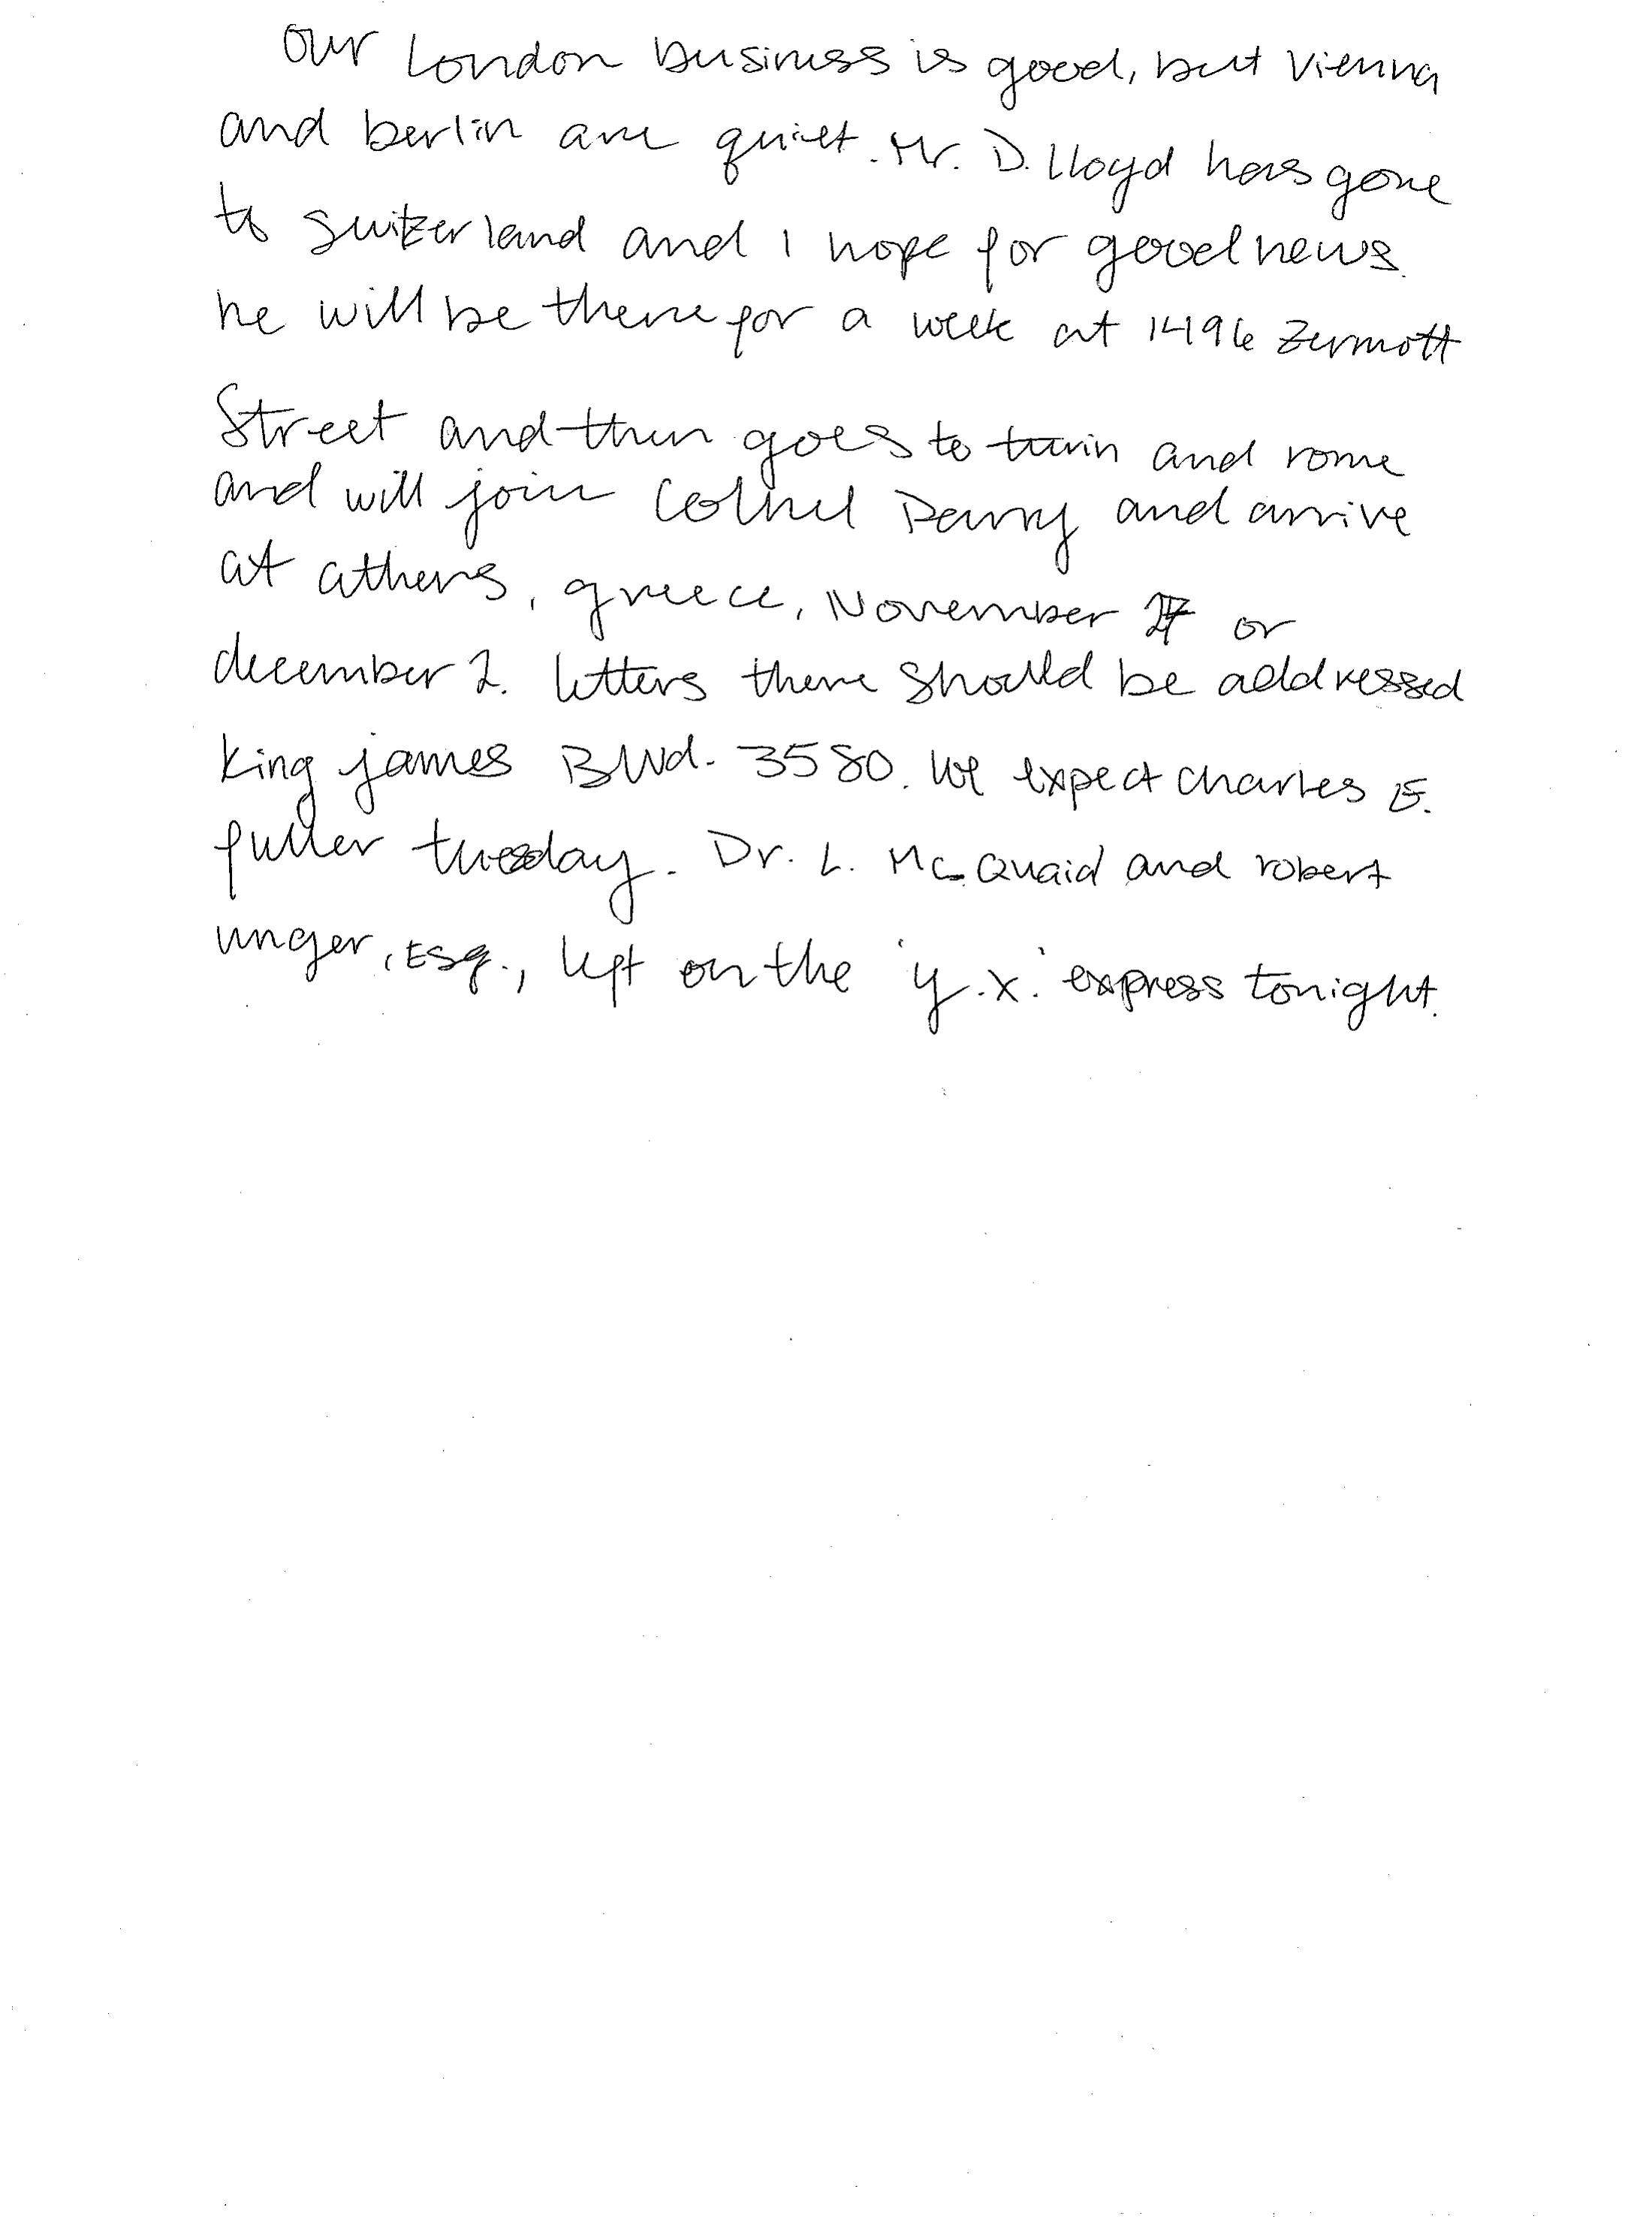 Our London business is good, but Vienna
and berlin are quiet. Mr. D. Lloyd has gone
to switzerland and I hope for good news.
he will be there for a week at 1496 Zermott
Street and then goes to turin and rome
and will join Colnel Parry and arrive
at athens, greece, November 27 or
december 2. letters there should be addressed
King james Blvd. 3580. We expect Charles E.
fuller tuesday. Dr. L. McQuaid and robert
unger, Esq., left on the 'y.x.' express tonight.